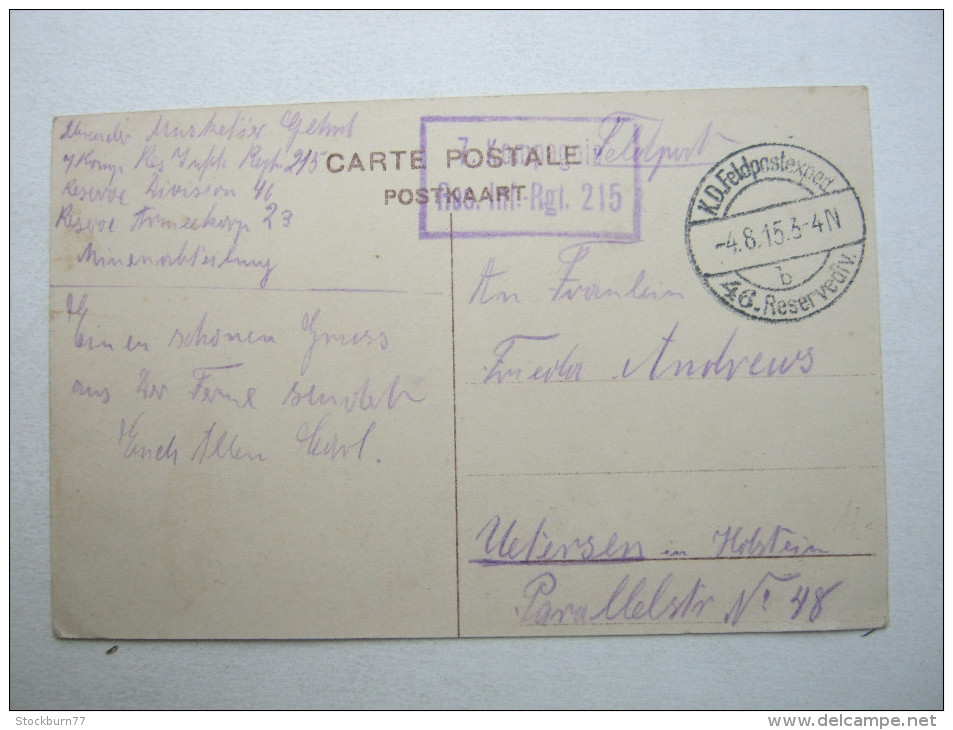 Musketier
7 Komp Res Infth Regth 215
Reserve Division 46
Reserve Armeekorp 23
Minenabteilung
CARTE POSTALE
POSTKAART
7. Kompagnie
Res. Inf. Rgt. 215
Feldpost
K.D.Feldpostexped.
-4.8.15.3-4N
b
46. Reservediv.
Einen schönen Gruss
aus Der Ferne sendet
Euch Allen
An Fraulein
Frieda Andrews
Uetersen in Holstein
Parallelstr No 48
Stockburn77
delcampe.net